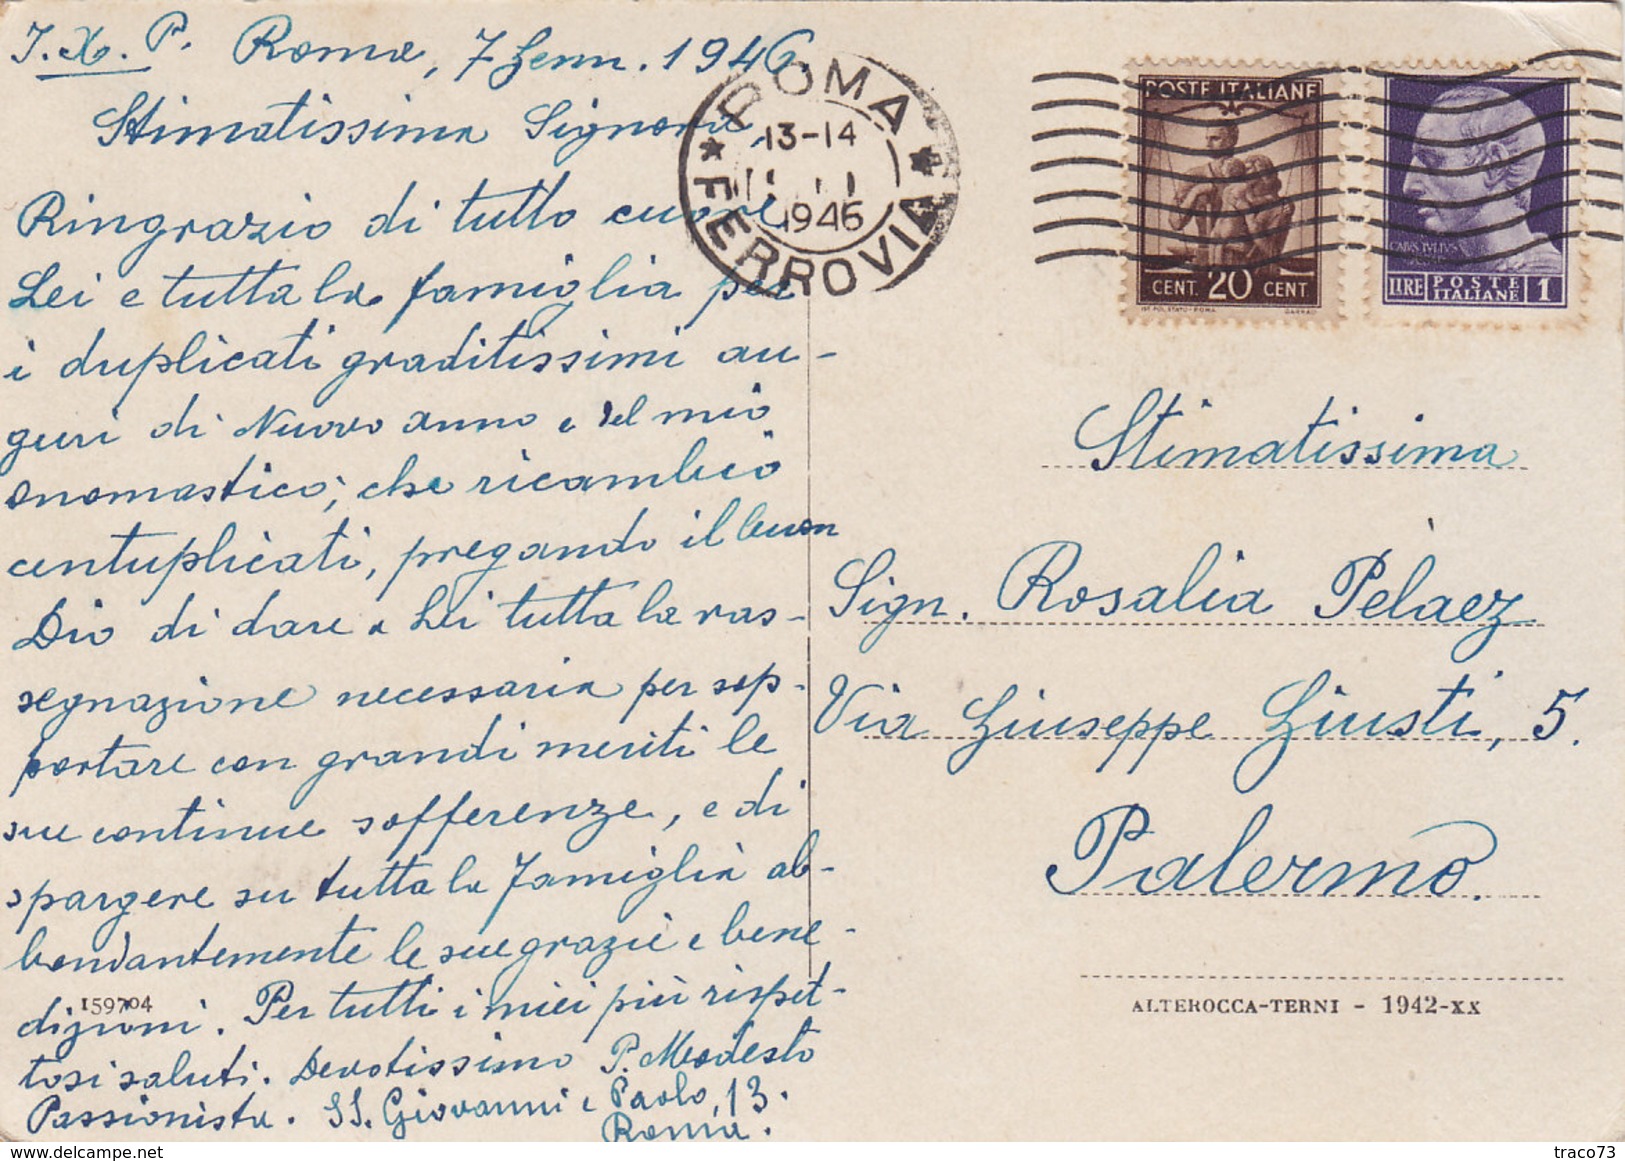 J. X. P. Roma, 7 Genn. 1946.
Stimatissima Signora,
Ringrazio di tutto cuore
Lei e tutta la famiglia per
i duplicati graditissimi au-
guri di Nuovo anno e del mio
onomastico; che ricambio
centuplicati, pregando il buon
Dio di dare a Lei tutta la ras-
segnazione necessaria per sop-
portare con grandi meriti le
sue continue sofferenze, e di
spargere su tutta la famiglia ab-
bondantemente le sue grazie e bene-
dizioni. Per tutti i miei più rispet-
tosi saluti. Devotissimo P. Modesto
Passionista. SS. Giovanni e Paolo, 13.
Roma.
159704
ROMA
13-14
1946
* FERROVIA *
POSTE ITALIANE
CENT. 20 CENT
IST. POL. STATO-ROMA
CAIVS IVLIVS
LIRE POSTE ITALIANE 1
Stimatissima
Sign. Rosalia Pèlaez
Via Giuseppe Giusti, 5.
Palermo.
ALTEROCCA-TERNI - 1942-XX
www.delcampe.net
traco73